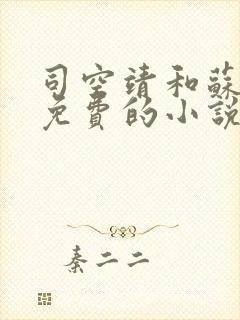 司空靖和蘇
免費的小說
秦二二